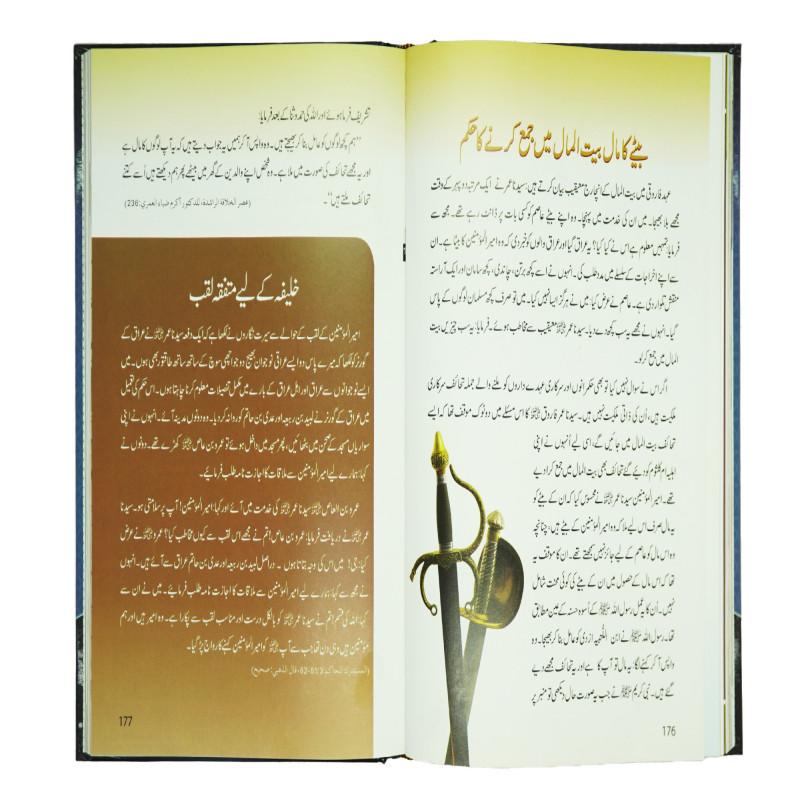 بیٹے کا مال بیت المال میں جمع کرنے کا حکم
عہد فاروقی میں بیت المال کے انچارج معیقیب بیان کرتے ہیں: سیدنا عمر ﷜ نے ایک مرتبہ دوپہر کے وقت
مجھے بلا بھیجا۔ میں ان کی خدمت میں پہنچا۔ وہ اپنے بیٹے عاصم کو کسی بات پر ڈانٹ رہے تھے۔ مجھ سے
فرمایا: تمہیں معلوم ہے اس نے کیا کیا؟ یہ عراق گیا اور عراق والوں کو خبر دی کہ وہ امیر المؤمنین کا بیٹا ہے۔ ان
سے اپنے اخراجات کے سلسلے میں مدد طلب کی۔ انہوں نے اسے کچھ برتن، چاندی، کچھ سامان اور ایک آراستہ
منقش تلوار دی ہے۔ عاصم نے عرض کیا: میں نے ہرگز ایسا نہیں کیا۔ میں تو صرف کچھ مسلمان لوگوں کے پاس
گیا۔ انہوں نے مجھے یہ سب کچھ دے دیا۔ سیدنا عمر ﷜ معیقیب سے مخاطب ہوئے۔ فرمایا: یہ سب چیزیں بیت
المال میں جمع کر لو۔
اگر اس نے سوال نہیں کیا تو بھی حکمرانوں اور سرکاری عہدے داروں کو ملنے والے جملہ تحائف سرکاری
ملکیت ہیں، اُن کی ذاتی ملکیت نہیں ہیں۔ سیدنا عمر فاروق ﷜ کا اس مسئلے میں دو ٹوک موقف تھا کہ ایسے
تحائف بیت المال میں جائیں گے، اسی لیے اُنہوں نے اپنی
اہلیہ ام کلثوم کو دیے گئے تحائف بھی بیت المال میں جمع کرا دیے
تھے۔ امیر المؤمنین سیدنا عمر ﷜ نے محسوس کیا کہ ان کے بیٹے کو
یہ مال صرف اس لیے ملا کہ وہ امیر المؤمنین کے بیٹے ہیں، چنانچہ
وہ اس مال کو عاصم کے لیے جائز نہیں سمجھتے تھے۔ ان کا موقف یہ
تھا کہ اس مال کے حصول میں ان کے بیٹے کی کوئی محنت شامل
نہیں۔ اُن کا یہ عمل رسول اللہ ﷺ کے اُسوۂ حسنہ کے عین مطابق
تھا۔ رسول اللہ ﷺ نے ابن اللتبیہ ازدی کو عامل بنا کر بھیجا۔ وہ
واپس آ کر کہنے لگا: یہ مال تو آپ کا ہے اور یہ تحائف مجھے دیے
گئے ہیں۔ نبی کریم ﷺ نے جب یہ صورت حال دیکھی تو منبر پر
176
تشریف فرما ہوئے اور اللہ کی حمد و ثنا کے بعد فرمایا:
’’ہم کچھ لوگوں کو عامل بنا کر بھیجتے ہیں۔ وہ واپس آ کر ہمیں یہ جواب دیتے ہیں کہ یہ آپ لوگوں کا مال ہے
اور یہ مجھے تحائف کی صورت میں ملا ہے۔ وہ شخص اپنے والدین کے گھر میں بیٹھے پھر ہم دیکھتے ہیں اُسے کتنے
تحائف ملتے ہیں‘‘۔ (عصر الخلافة الراشدة، للدكتور أكرم ضياء العمري:236)
خلیفہ کے لیے متفقہ لقب
امیر المؤمنین کے لقب کے حوالے سے سیرت نگاروں نے لکھا ہے کہ ایک دفعہ سیدنا عمر ﷜ نے عراق کے
گورنر کو لکھا کہ میرے پاس دو ایسے عراقی نوجوان بھیج دو جو اچھی سوچ کے ساتھ ساتھ طاقتور بھی ہوں۔ میں
ایسے نوجوانوں سے عراق اور اہل عراق کے بارے میں مکمل تفصیلات معلوم کرنا چاہتا ہوں۔ اس حکم کی تعمیل
میں عراق کے گورنر نے لبید بن ربیعہ اور عدی بن حاتم کو روانہ کر دیا۔ وہ دونوں مدینہ آئے۔ انہوں نے اپنی
سواریاں مسجد کے صحن میں بٹھائیں، پھر مسجد میں داخل ہوئے تو عمرو بن عاص ﷜ کھڑے تھے۔ دونوں نے
کہا: ہمارے لیے امیر المؤمنین سے ملاقات کا اجازت نامہ طلب فرمائیے۔
عمرو بن العاص ﷜ سیدنا عمر ﷜ کی خدمت میں آئے اور کہا: امیر المؤمنین! آپ پر سلامتی ہو۔ سیدنا
عمر ﷜ نے دریافت فرمایا: عمرو بن عاص! تم نے مجھے اس لقب سے کیوں مخاطب کیا؟ عمرو ﷜ نے عرض
کیا: جی! میں اس کی وجہ بتاتا ہوں۔ دراصل لبید بن ربیعہ اور عدی بن حاتم عراق سے آئے ہیں۔ انہوں
نے مجھ سے کہا: ہمارے لیے امیر المؤمنین سے ملاقات کا اجازت نامہ طلب فرمائیے۔ میں نے ان سے
کہا: اللہ کی قسم! تم نے سیدنا عمر ﷜ کو بالکل درست اور مناسب لقب سے پکارا ہے۔ وہ امیر ہیں اور ہم
مؤمنین ہیں۔ وہی دن تھا جب سے آپ ﷜ کو امیر المؤمنین کہنے کا رواج پڑ گیا۔
(المستدرك للحاكم:81/3-82، قال الذهبي: صحيح)
177